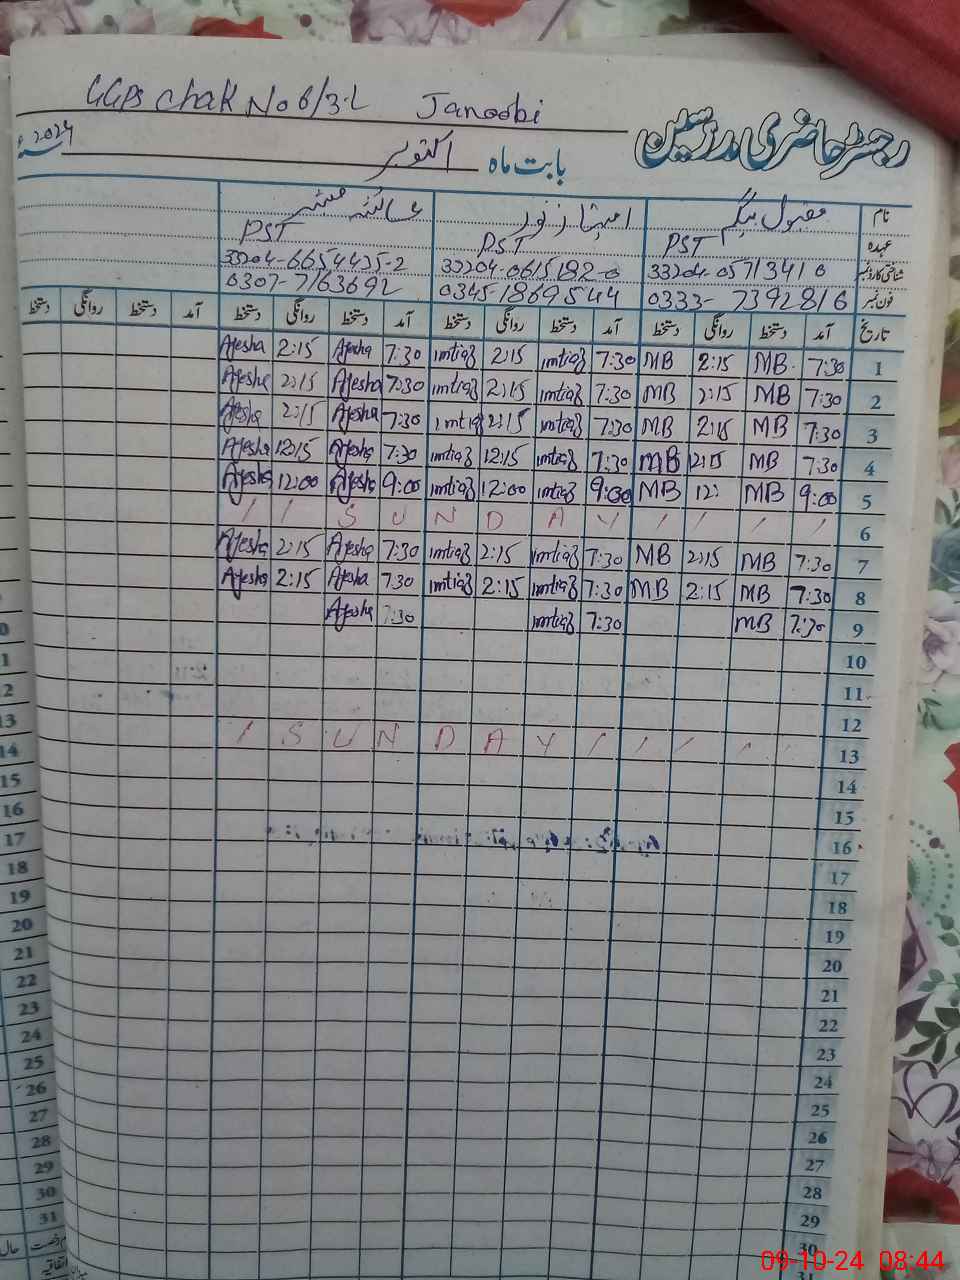 GGPS Chak No 6/3-L Janoobi
رجسٹر حاضری مدرسین
بابت ماہ اکتوبر 2024
نام مقبول بیگم امتیاز نور عائشہ مبشر
عہدہ PST PST PST
شناختی کارڈ نمبر 33204-0571341 0 33204-0615182-0 33204-6654425-2
فون نمبر 0333-7392816 03451869544 0307-7163692
تاریخ آمد دستخط روانگی دستخط آمد دستخط روانگی دستخط آمد دستخط روانگی دستخط آمد دستخط روانگی دستخط
Ayesha 2:15 Ayesha 7:30 imtiaz 2:15 imtiaz 7:30 MB 2:15 MB 7:30 1
Ayesha 2:15 Ayesha 7:30 imtiaz 2:15 imtiaz 7:30 MB 2:15 MB 7:30 2
Ayesha 2:15 Ayesha 7:30 imtiaz 2:15 imtiaz 7:30 MB 2:15 MB 7:30 3
Ayesha 12:15 Ayesha 7:30 imtiaz 12:15 imtiaz 7:30 MB 12:15 MB 7:30 4
Ayesha 12:00 Ayesha 9:00 imtiaz 12:00 imtiaz 9:00 MB 12: MB 9:00 5
/ / S U N D A Y / / / / 6
Ayesha 2:15 Ayesha 7:30 imtiaz 2:15 imtiaz 7:30 MB 2:15 MB 7:30 7
Ayesha 2:15 Ayesha 7:30 imtiaz 2:15 imtiaz 7:30 MB 2:15 MB 7:30 8
Ayesha 7:30 imtiaz 7:30 MB 7:30 9
10
11
12
/ S U N D A Y / / / / / 13
14
15
16
17
18
19
20
21
22
23
24
25
26
27
28
29
30
31
0
1
2
13
14
15
16
17
18
19
20
21
22
23
24
25
26
27
28
29
30
31
حال
اتفاقیہ
09-10-24 08:44